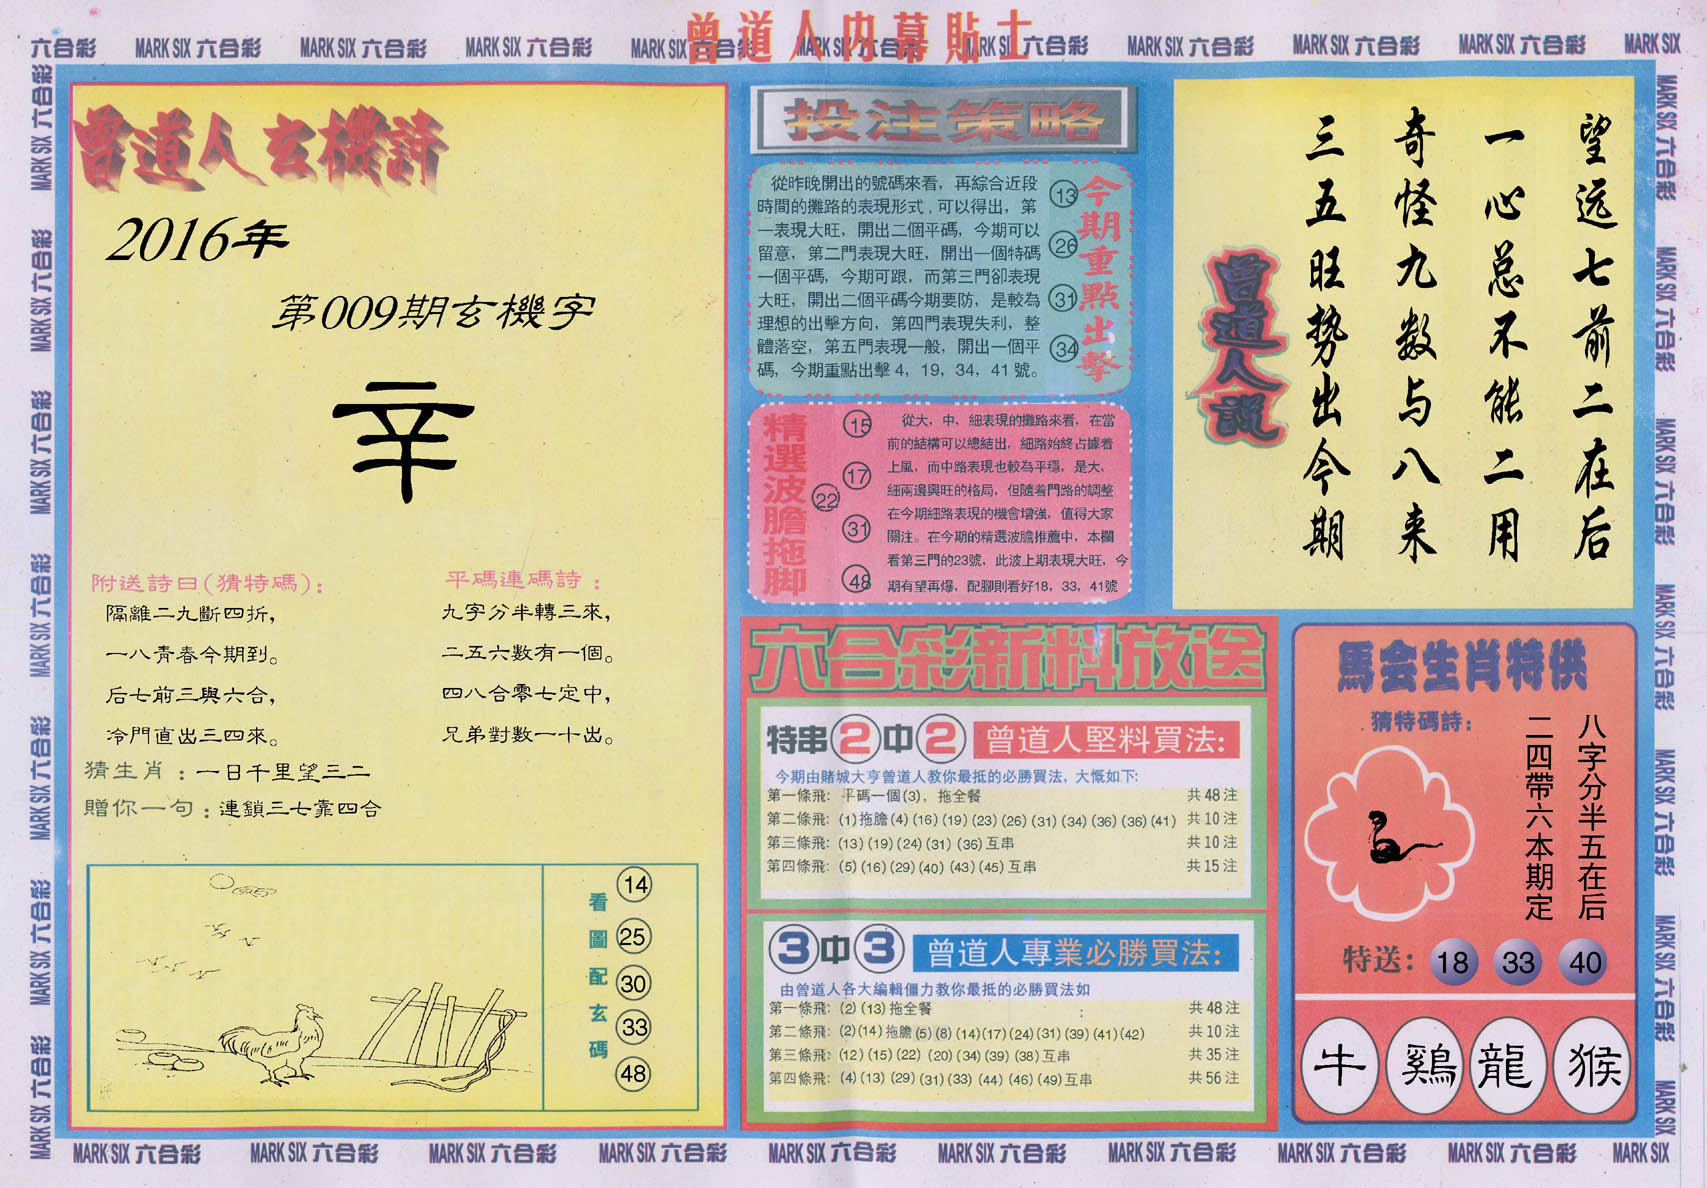 曾道人内幕貼士
六合彩 MARK SIX 六合彩 MARK SIX 六合彩 MARK SIX 六合彩 MARK SIX 六合彩 MARK SIX 六合彩 MARK SIX 六合彩 MARK SIX 六合彩 MARK SIX 六合彩 MARK SIX 六合彩 MARK SIX
曾道人玄機詩
2016年
第009期玄機字
辛
附送詩曰(猜特碼):
隔離二九斷四折,
一八青春今期到。
后七前三與六合,
冷門直出三四來。
平碼連碼詩:
九字分半轉三來,
二五六數有一個。
四八合零七定中,
兄弟對數一十出。
猜生肖:一日千里望三二
贈你一句:連鎖三七靠四合
看圖配玄碼
14
25
30
33
48
投注策略
從昨晚開出的號碼來看，再綜合近段
時間的攤路的表現形式,可以得出，第
一表現大旺，開出二個平碼，今期可以
留意，第二門表現大旺，開出一個特碼
一個平碼，今期可跟，而第三門卻表現
大旺，開出二個平碼今期要防，是較為
理想的出擊方向，第四門表現失利，整
體落空，第五門表現一般，開出一個平
碼，今期重點出擊4，19，34，41號。
13
26
31
34
今期重點出擊
精選波膽拖脚
15
17
22
31
48
從大，中，細表現的攤路來看，在當
前的結構可以總結出，細路始終占據着
上風，而中路表現也較為平穩，是大，
細兩邊興旺的格局，但隨着門路的調整
在今期細路表現的機會增強，值得大家
關注。在今期的精選波膽推薦中，本欄
看第三門的23號，此波上期表現大旺，今
期有望再爆，配腳則看好18，33，41號
望远七前二在后
一心总不能二用
奇怪九数与八来
三五旺势出今期
曾道人説
六合彩新料放送
特串2中2 曾道人堅料買法:
今期由賭城大亨曾道人教你最抵的必勝買法，大慨如下:
第一條飛: 平碼一個(3)，拖全餐 共48注
第二條飛: (1)拖膽(4)(16)(19)(23)(26)(31)(34)(36)(36)(41) 共10注
第三條飛: (13)(19)(24)(31)(36)互串 共10注
第四條飛: (5)(16)(29)(40)(43)(45)互串 共15注
3中3 曾道人專業必勝買法:
由曾道人各大編輯僵力教你最抵的必勝買法如
第一條飛: (2)(13)拖全餐 共48注
第二條飛: (2)(14)拖膽(5)(8)(14)(17)(24)(31)(39)(41)(42) 共10注
第三條飛: (12)(15)(22)(20)(34)(39)(38)互串 共35注
第四條飛: (4)(13)(29)(31)(33)(44)(46)(49)互串 共56注
馬会生肖特供
猜特碼詩:
八字分半五在后
二四帶六本期定
特送: 18 33 40
牛 鷄 龍 猴
MARK SIX 六合彩 MARK SIX 六合彩 MARK SIX 六合彩 MARK SIX 六合彩 MARK SIX 六合彩 MARK SIX 六合彩 MARK SIX 六合彩 MARK SIX 六合彩 MARK SIX 六合彩 MARK SIX